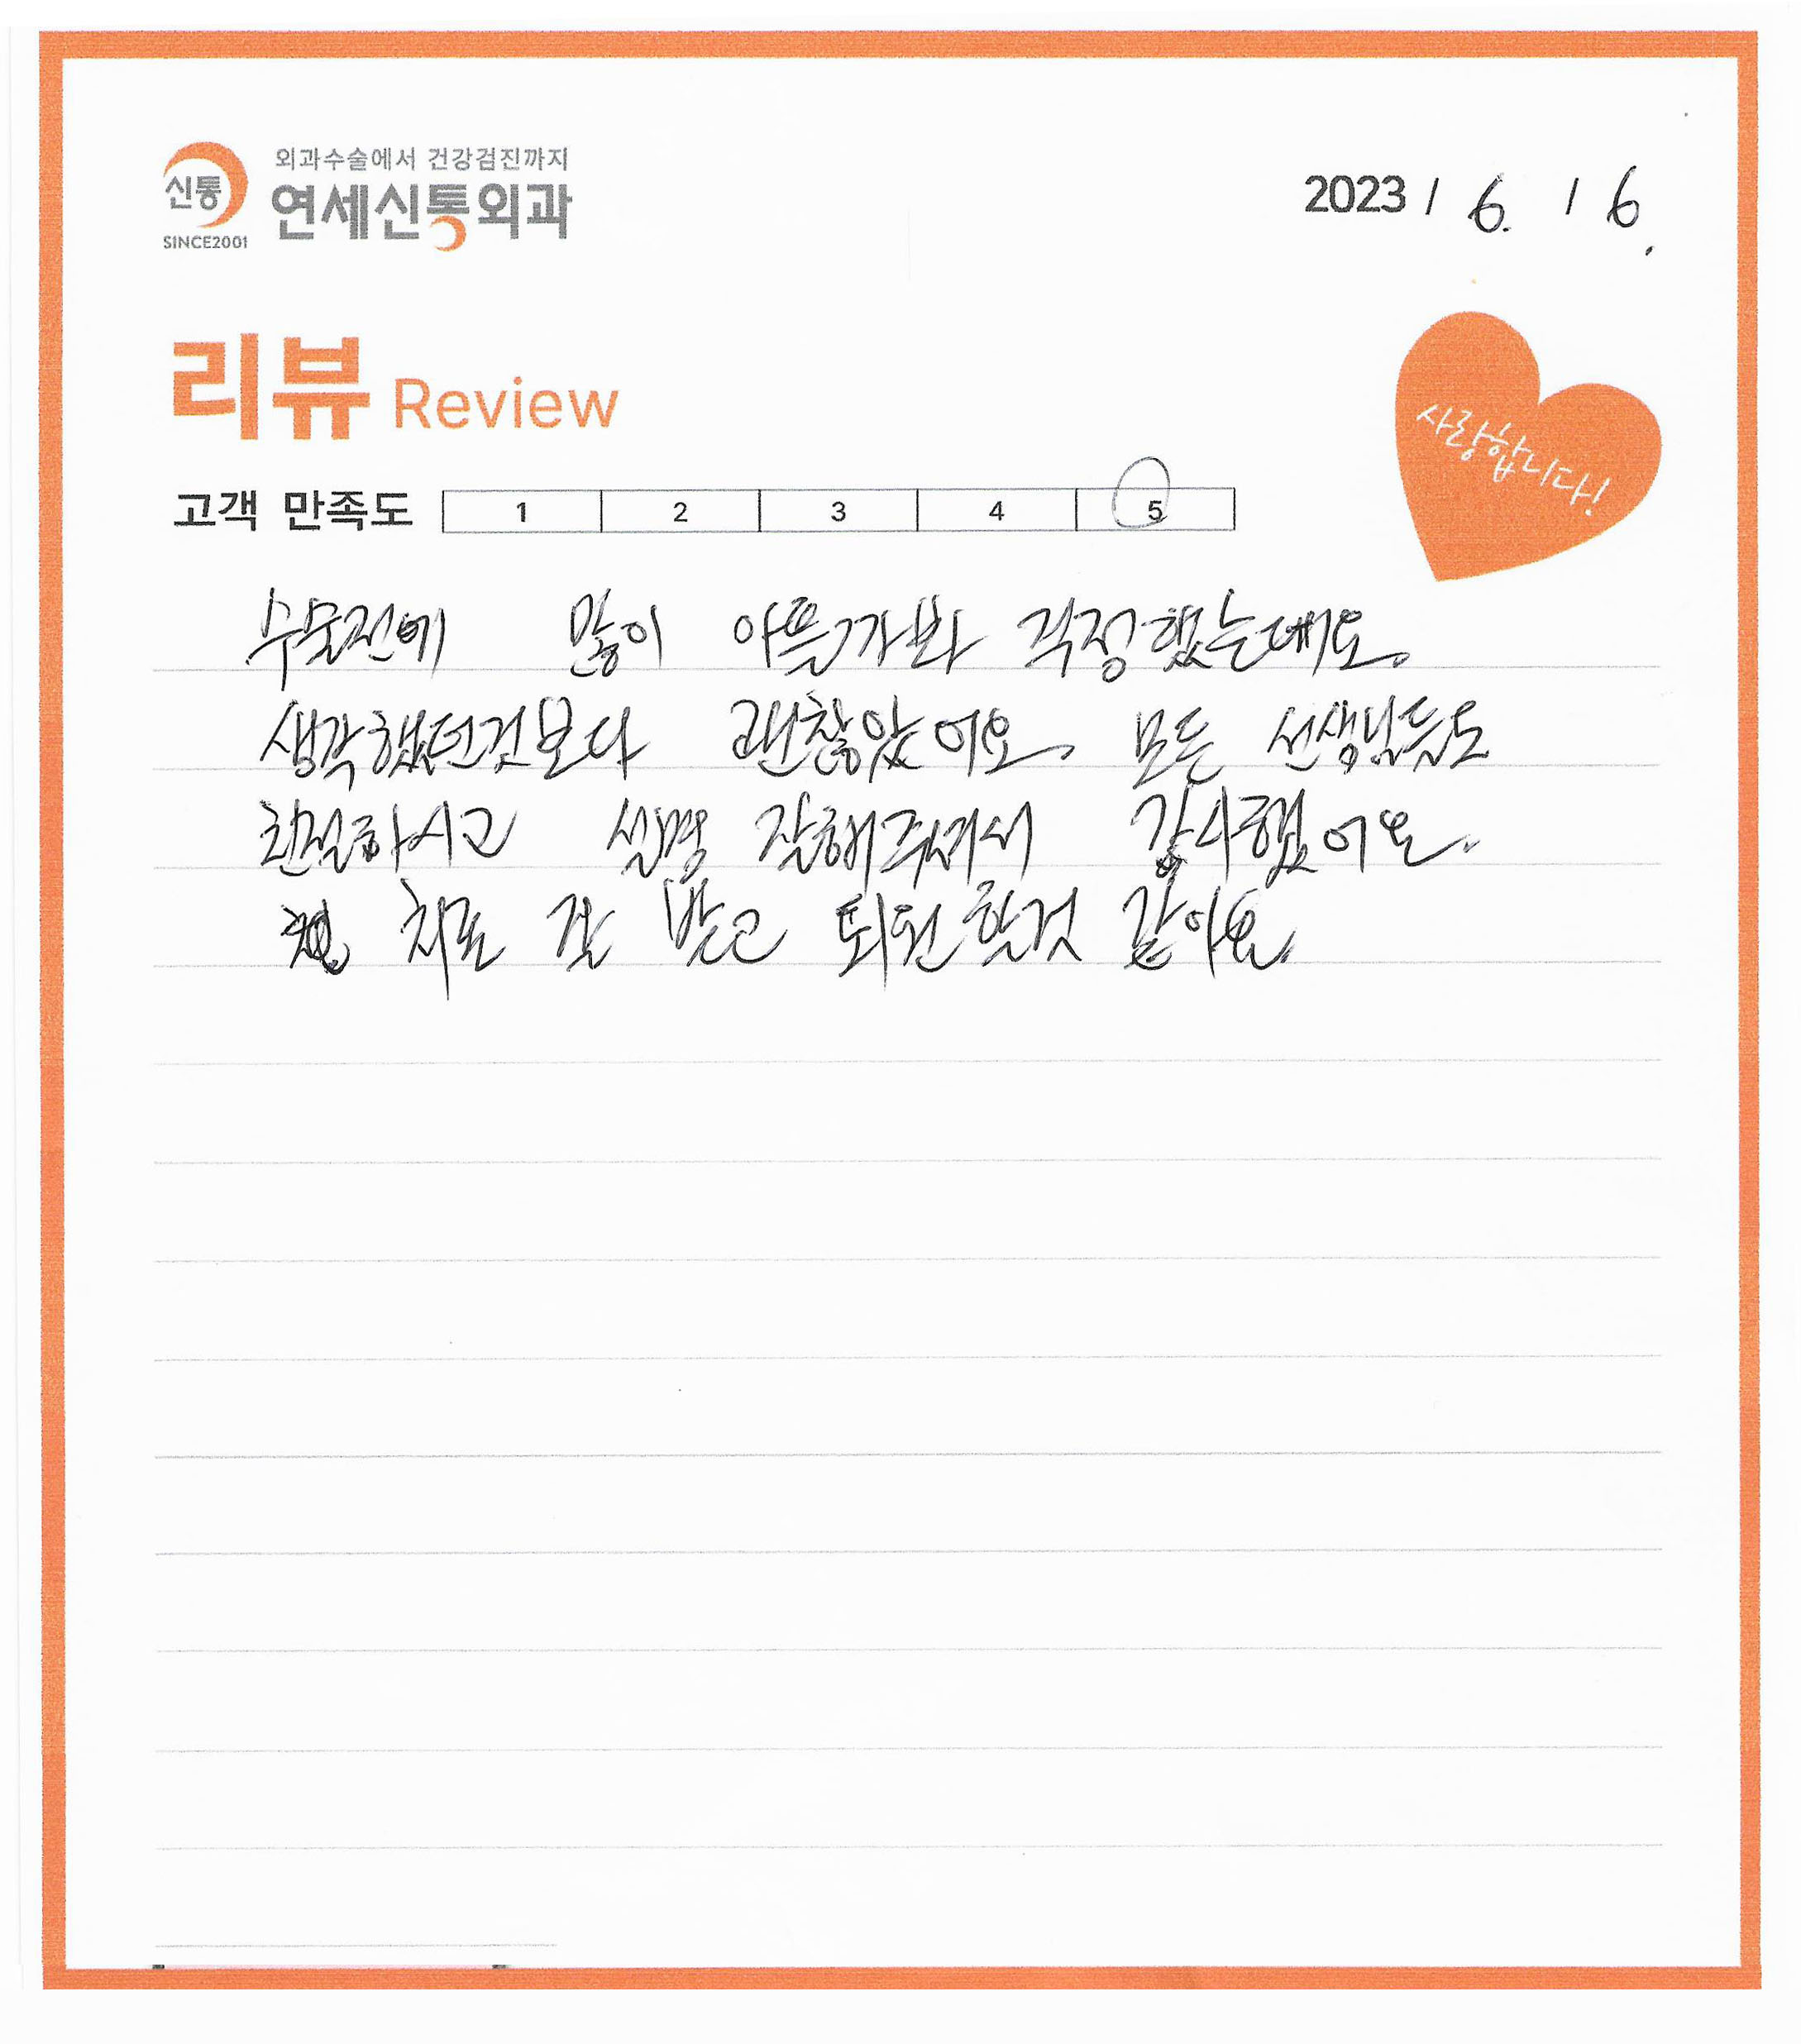 신통
SINCE2001
외과수술에서 건강검진까지
연세신통외과
2023 / 6. / 6.
리뷰 Review
사랑합니다!
고객 만족도 1 2 3 4 5
수술전에 많이 아플까봐 걱정했는데요.
생각했던것보다 괜찮았어요. 모든 선생님들도
친절하시고 설명 잘해주셔서 감사했어요.
치료 잘 받고 퇴원할것 같아요.